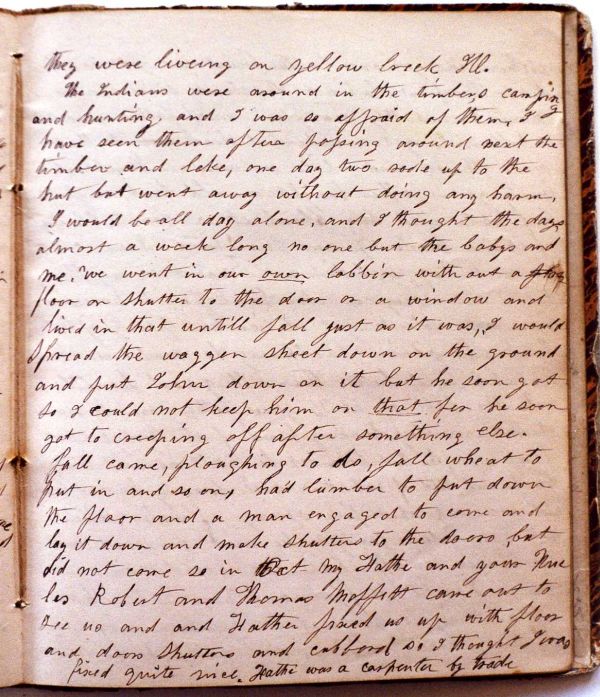 they were liveing on yellow Creek Ill.
The Indians were around in the timbers camping
and hunting, and I was so affraid of them, I
have seen them oftes passing around next the
timber and lake, one day two rode up to the
hut but went away without doing any harm,
I would be all day alone, and I thought the days
almost a week long no one but the babys and
me. we went in our own cabbin without a
floor or shutter to the door or a window and
lived in that untill fall just as it was, I would
spread the waggen sheet down on the ground
and put John down on it but he soon got
so I could not keep him on that for he soon
got to creeping off after something else.
fall came, ploughing to do, fall wheat to
put in and so on, had lumber to put down
the floor and a man engaged to come and
lay it down and make shutters to the doors, but
did not come so in Oct my Fathe and your Unc
les Robert and Thomas Moffett came out to
see us and and Father fixed us up with floor
and doors shutters and cubberd so I thought I was
fixed quite nice. Fathe was a carpenter by trade